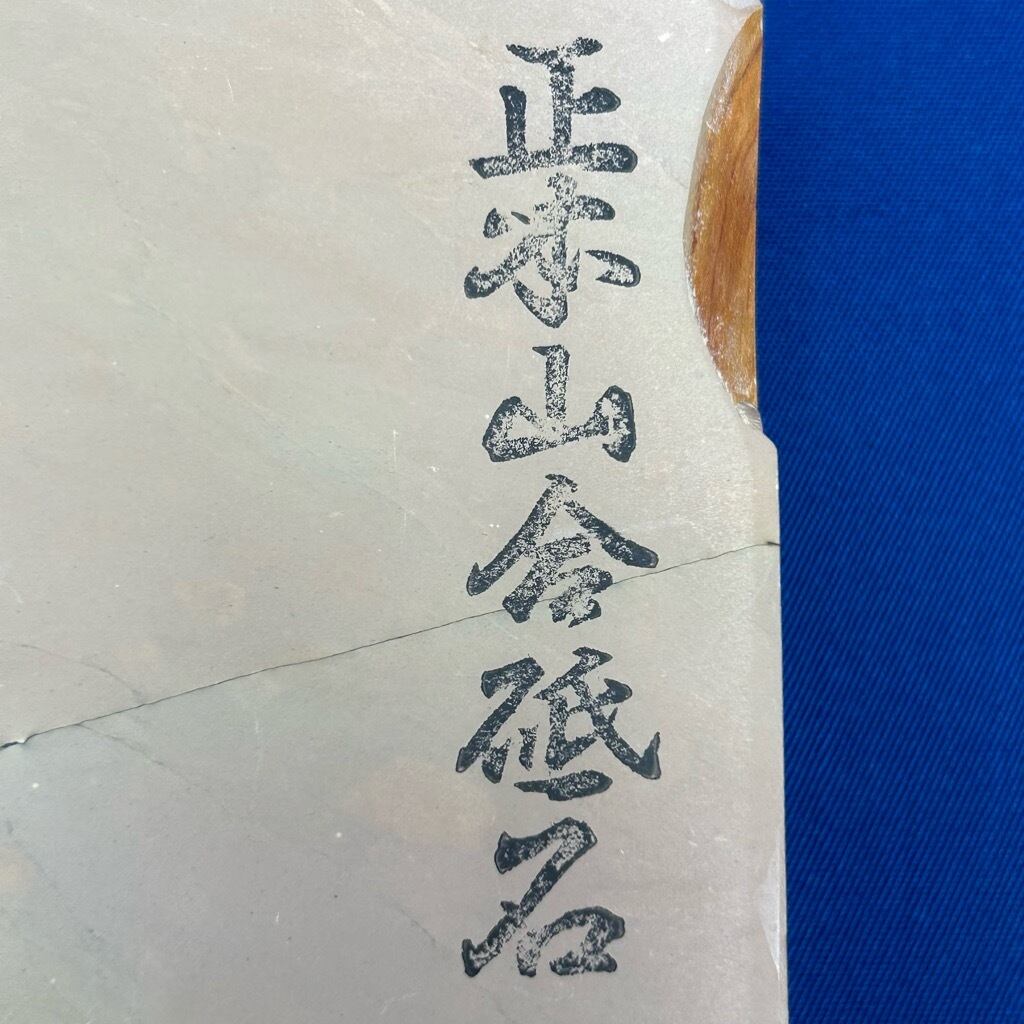 正本山合砥石